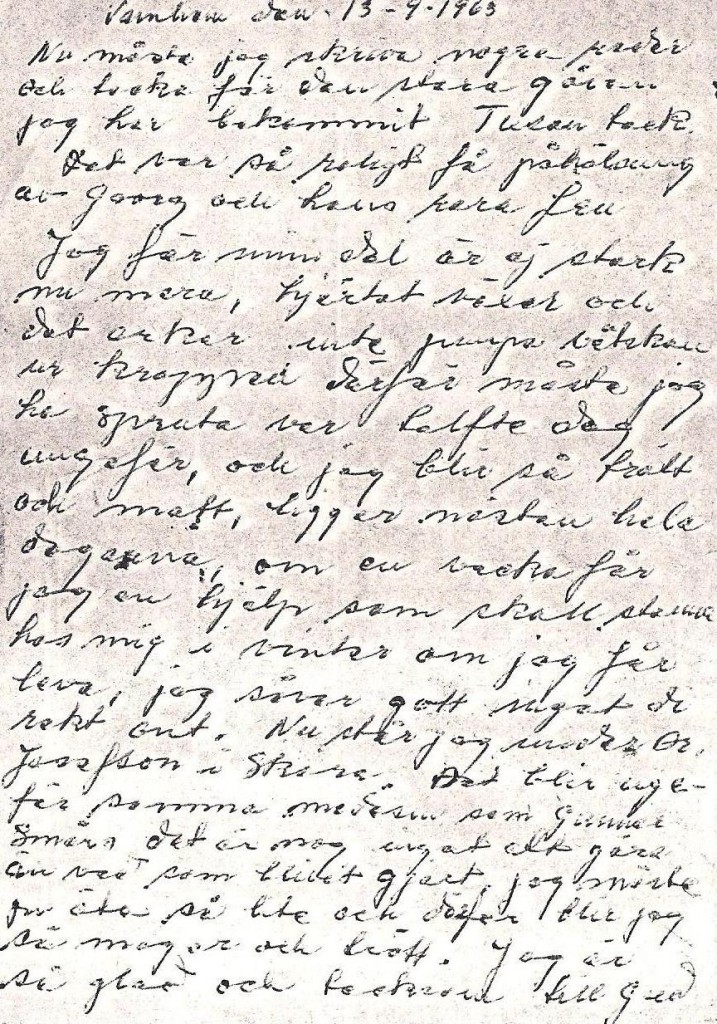 Varnhem den. 13-9-1963
Nu måste jag skriva några rader
och tacka för den stora gåvan
jag har bekommit Tusen tack.
Det var så roligt få påhälsning
av Georg och hans rara fru
Jag för min del är ej stark
nu mera, hjärtat växer och
det orkar inte pumpa vätskan
ur kroppen därför måste jag
ha spruta var tolfte dag
ungefär, och jag blir så trött
och matt, ligger nästan hela
dagarna, om en vecka får
jag en hjälp som skall stanna
hos mig i vinter om jag får
leva, jag sover gott inget di
rekt ont. Nu står jag under Dr.
Josefson i Skara Det blir unge-
fär samma medesin som Gunnar
Smärs det är nog inget att göra
än vad som blivit gjort, jag måste
ju äta så lite och därför blir jag
så mager och trött. Jag är
så glad och tacksam till Gud